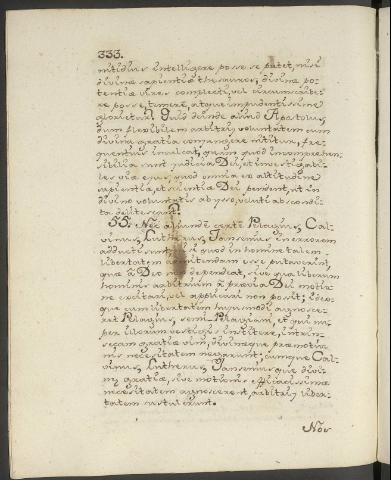 333.
nitidius intelligere posse se putet, nisi
divinæ sapientiæ thesauros, divinæ po-
tentiæ vires complecti, vel circumscribe-
re posse, temerè, atque impudentissimè
glorietur. Quid deinde aliud Apostolus,
dum flexibilem arbitrij voluntatem cum
divina gratia conjungere nititur, fre-
quentius inculcat, quam quod incomprehen-
sibilia sunt judicia Dei, et investigabi-
les viæ ejus, quod omnia ex altitudine
sapientiæ, et scientiæ Dei pendent, et in
divinæ voluntatis abysso, veluti abscondi-
ta delitescant?
55. Nec aliunde certè Pelagius, Cal-
vinus, Lutherus, Jansenius in errorem
adducti sunt, quod hominis talem
libertatem admittendam esse putaverint,
quæ à Deo non dependeat, sive quia liberum
hominis arbitrium à prævia Dei motio-
ne excitari, vel applicari non possit; ideo-
que cum libertatem hujusmodi agnosce-
rent Pelagius, semi-Pelagiani, et qui nu-
per illorum vestigiis institere, intrin-
secam gratiæ vim, divinæque præmotio-
nis necessitatem negarunt; cumque Cal-
vinus, Lutherus, Jansenius que divi-
næ gratiæ, sive motionis efficacissimæ
necessitatem agnoscerent, arbitrij liber-
tatem sustulerunt.
Nos